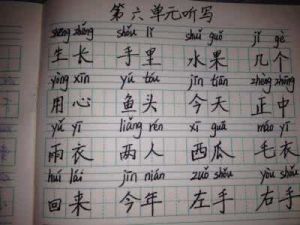 第六单元听写
shēng zhǎng shǒu lǐ shuǐ guǒ jǐ gè
生长 手里 水果 几个
yòng xīn yú tóu jīn tiān zhèng zhōng
用心 鱼头 今天 正中
yǔ yī liǎng rén xī guā máo yī
雨衣 两人 西瓜 毛衣
huí lái jīn nián zuǒ shǒu yòu shǒu
回来 今年 左手 右手